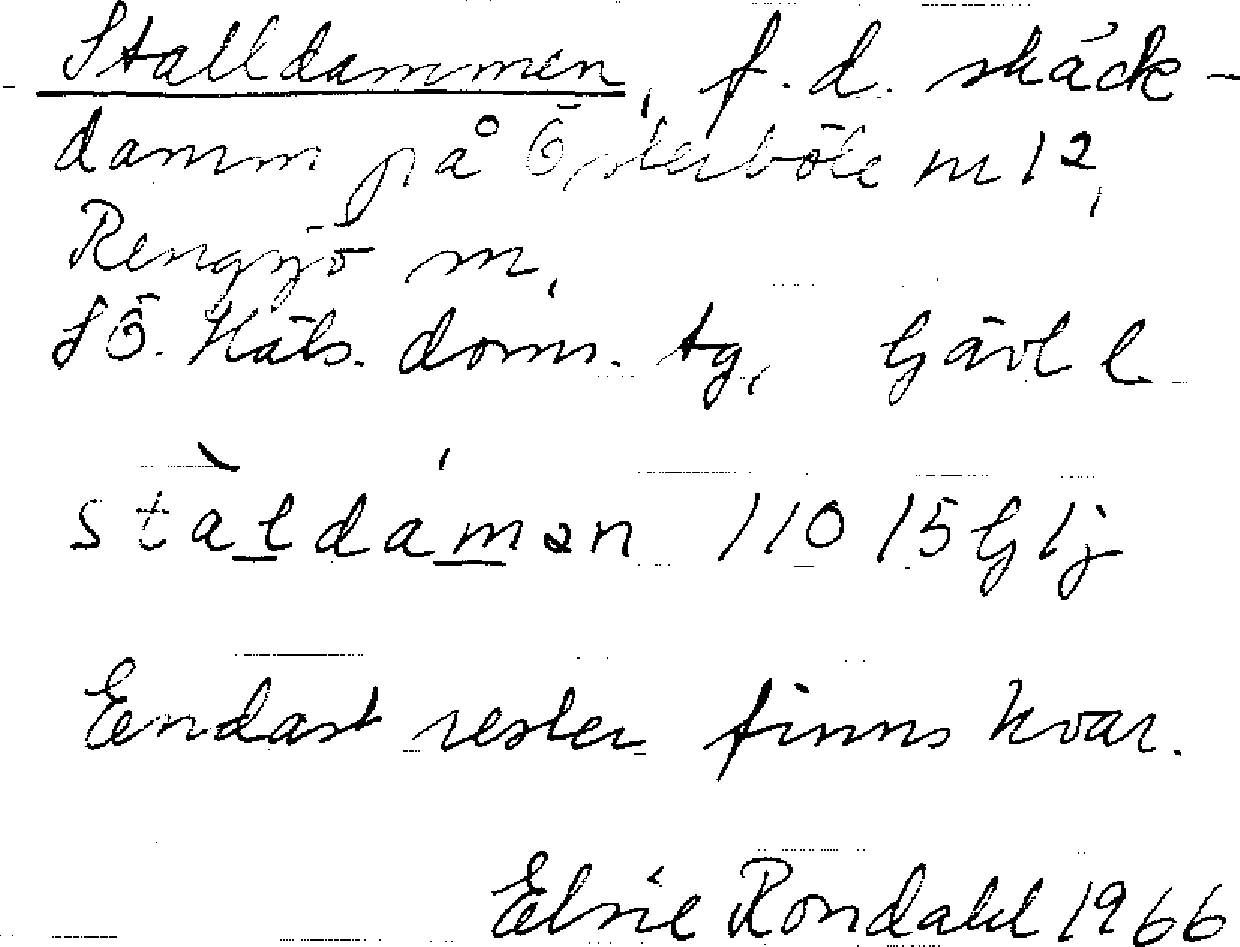 Stalldammen, f.d. skäck-
damm på Österböle nr 12,
Rengsjö sn,
SÖ. Häls. doms. tg, Gävl l
stàldámən 11015 Glj
Endast rester finns kvar.
Elsie Rondahl 1966